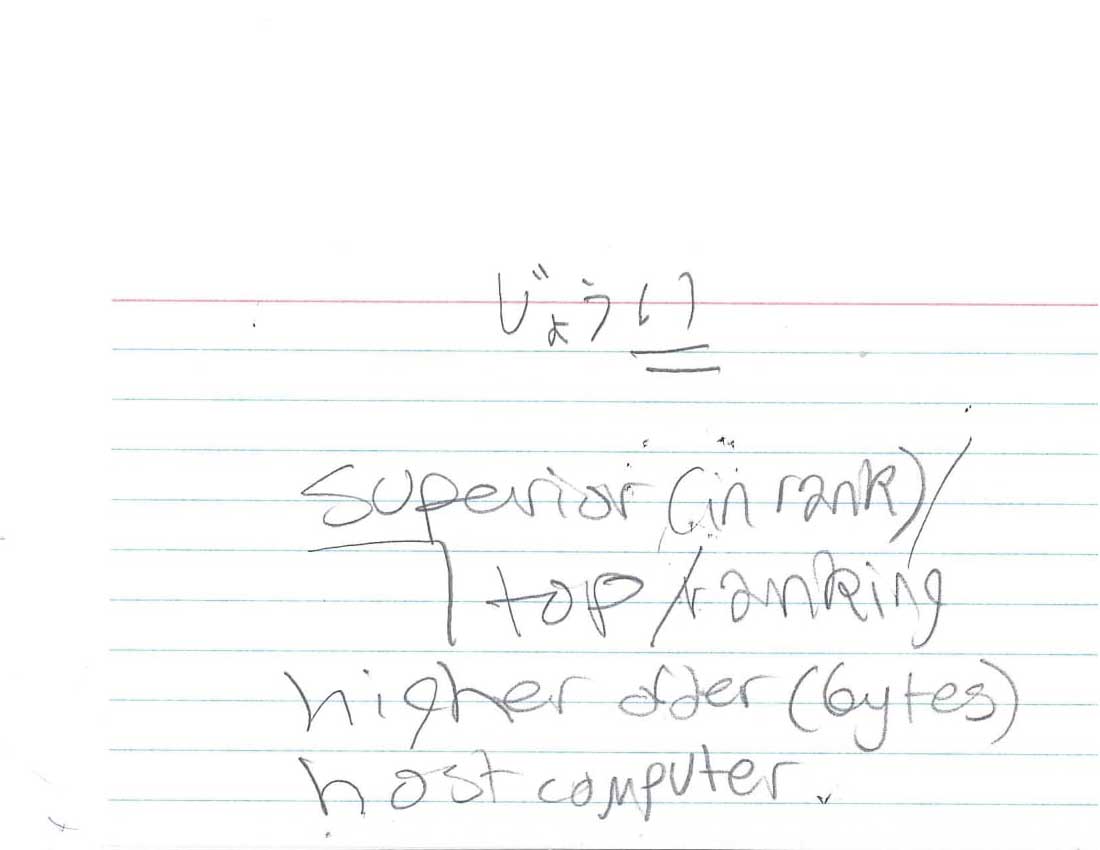 じょうい
superior (in rank)/
top/ranking
higher order (bytes)
host computer.